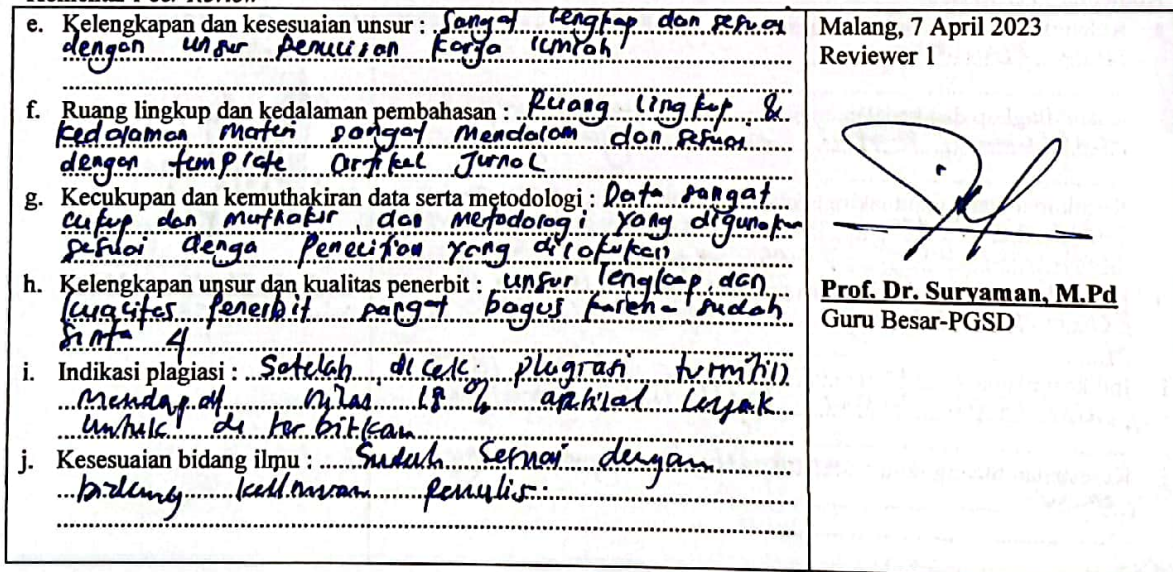 Komentar Peer Review
e. Kelengkapan dan kesesuaian unsur : Sangat lengkap dan sesuai
dengan unsur penulisan karya ilmiah
f. Ruang lingkup dan kedalaman pembahasan : Ruang lingkup &
kedalaman materi sangat mendalam dan sesuai
dengan template artikel jurnal
g. Kecukupan dan kemuthakiran data serta metodologi : Data sangat
cukup dan muthakir dan metodologi yang digunakan
sesuai denga penelitian yang dilakukan
h. Kelengkapan unsur dan kualitas penerbit : unsur lengkap dan
kualitas penerbit sangat bagus karena sudah
Sinta 4
i. Indikasi plagiasi : Setelah di cek plagiasi turnitin
mendapat nilai 18 % artikel layak
untuk di terbitkan
j. Kesesuaian bidang ilmu : Sudah sesuai dengan
bidang keilmuan penulis.
Malang, 7 April 2023
Reviewer 1
Prof. Dr. Suryaman, M.Pd
Guru Besar-PGSD